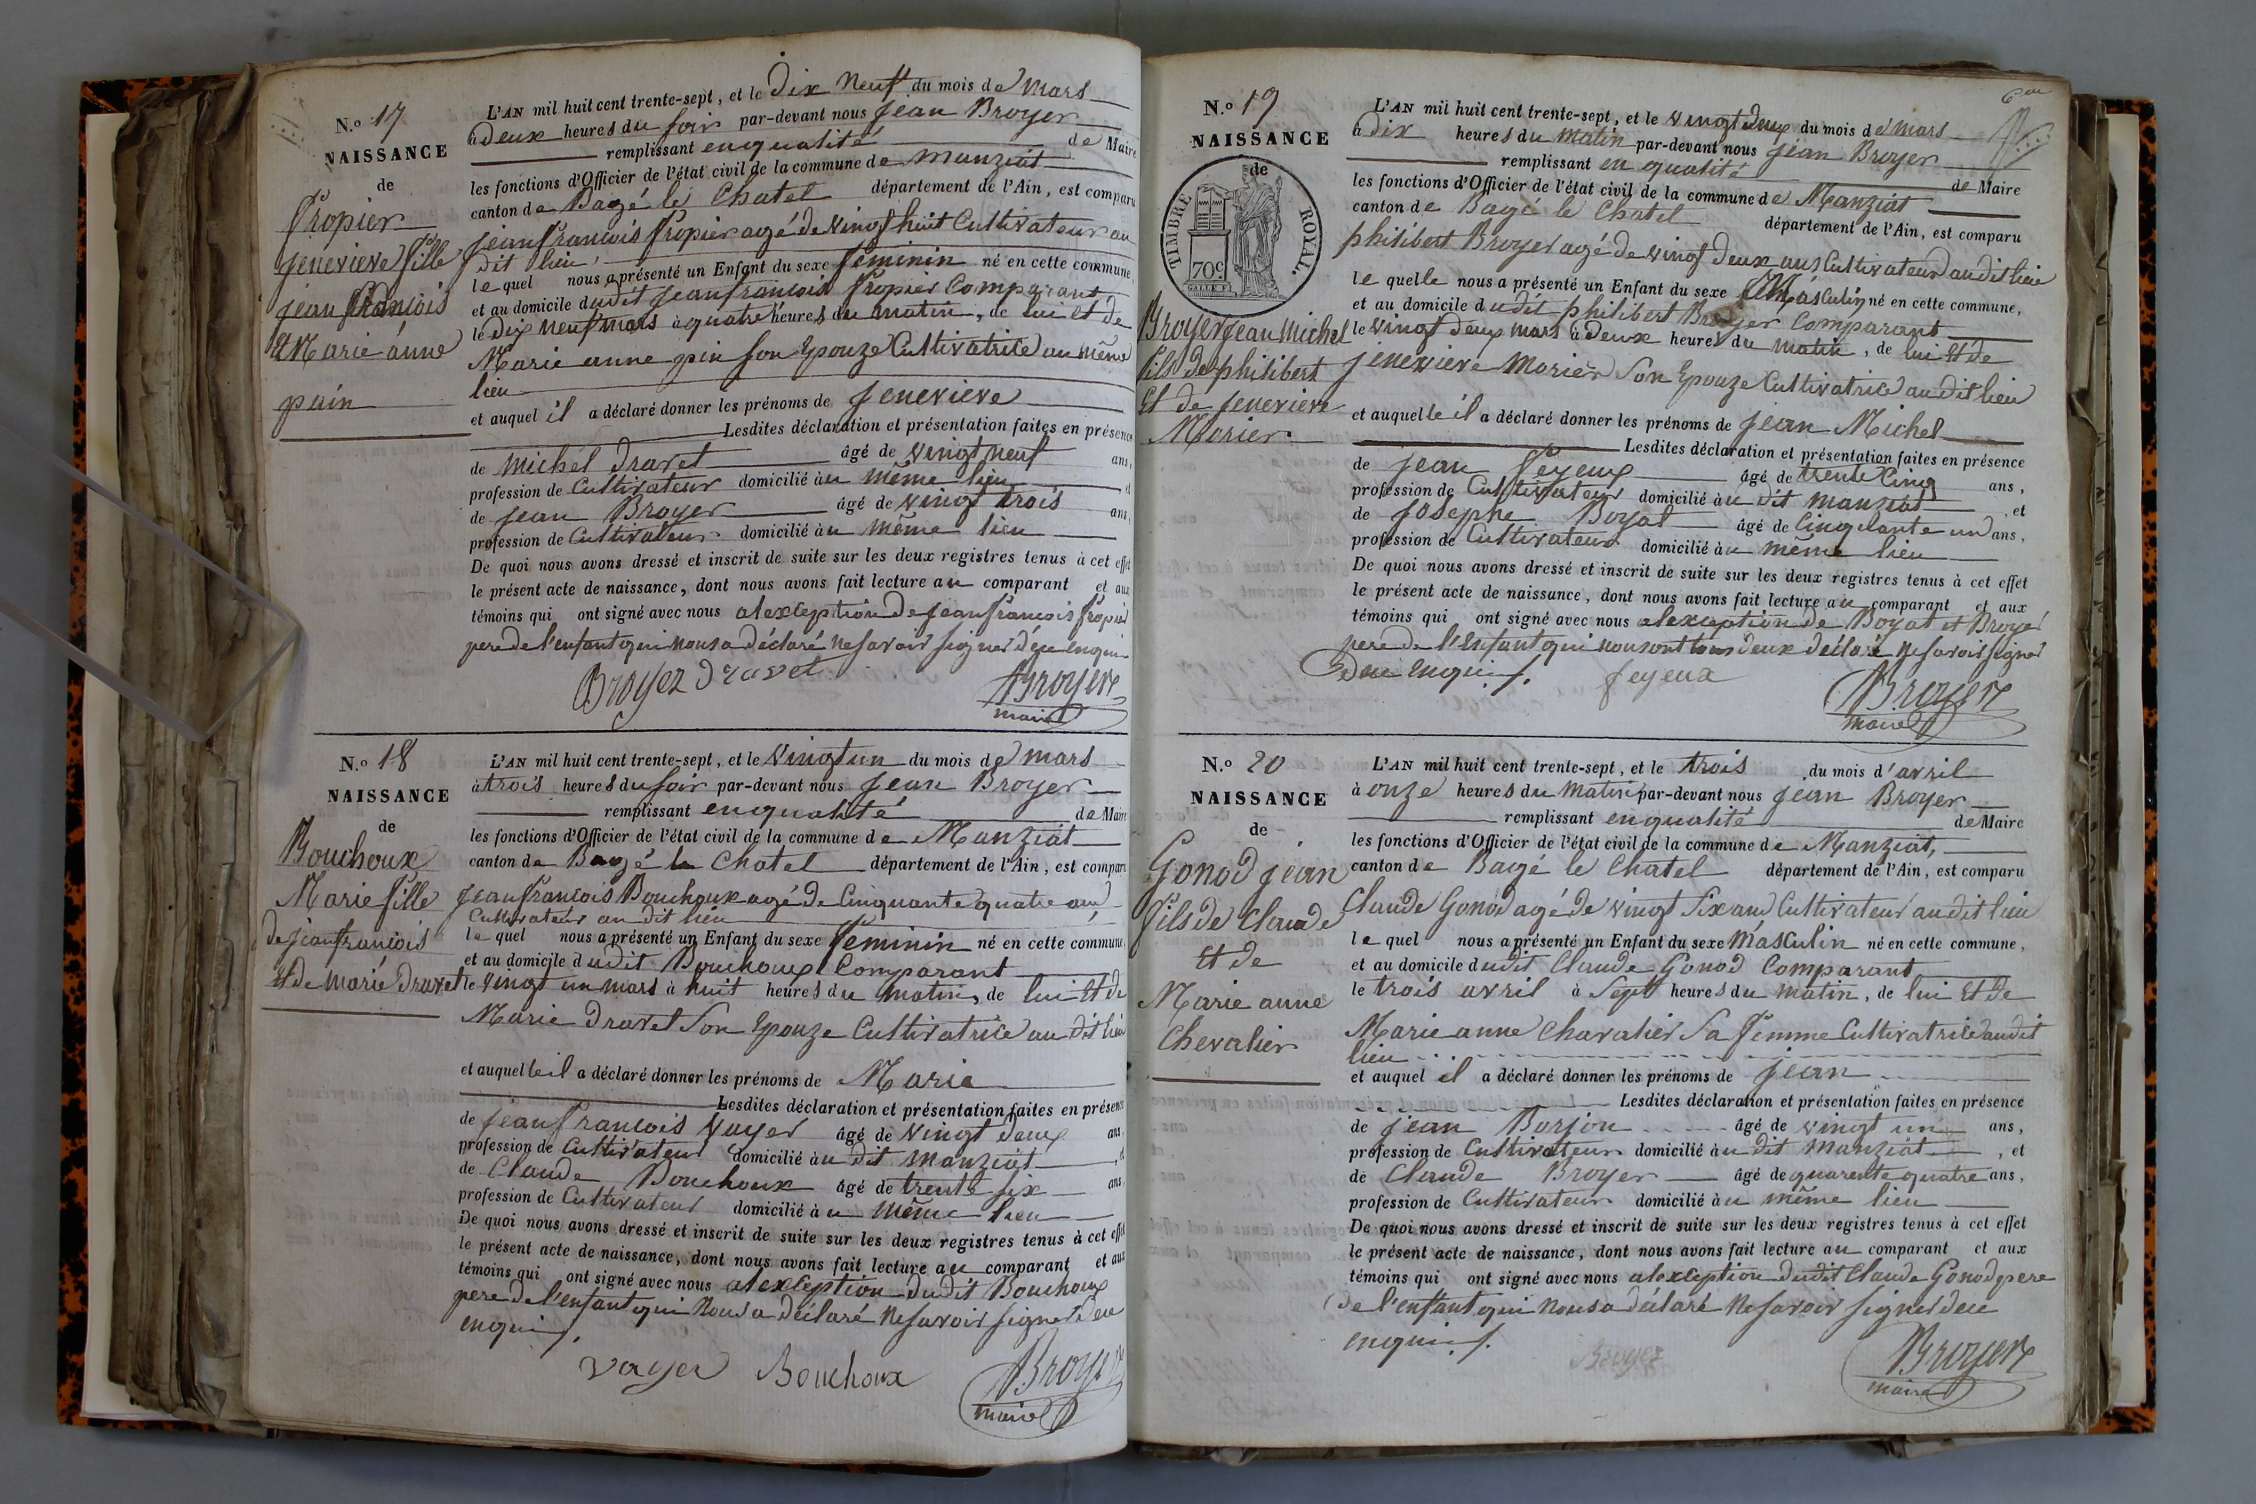 N.o 17
NAISSANCE
de
Propier
jenevieve fille
jean francois
& Marie anne
pain
L'AN mil huit cent trente-sept, et le dix neuf du mois de mars
à deux heures du soir par-devant nous jean Broyer
remplissant en qualité de Maire
les fonctions d'Officier de l'état civil de la commune de manziat
canton de Bagé le Chatel département de l'Ain, est comparu
jean francois Propier agé de vingt huit Cultivateur au
dit lieu
le quel nous a présenté un Enfant du sexe feminin né en cette commune
et au domicile dudit jean francois Propier Comparant
le dix neuf mars à quatre heures du matin, de lui et de
Marie anne pin son Epouze Cultivatrice au même
lieu
et auquel il a déclaré donner les prénoms de jenevieve
Lesdites déclaration et présentation faites en présence
de michel dravet âgé de vingt neuf ans,
profession de Cultivateur domicilié au même lieu et
de jean Broyer âgé de vingt trois ans,
profession de Cultivateur domicilié au même lieu
De quoi nous avons dressé et inscrit de suite sur les deux registres tenus à cet effet
le présent acte de naissance, dont nous avons fait lecture au comparant et aux
témoins qui ont signé avec nous alexception de jean francois Propier
pere de l'enfant qui nous a déclaré ne savoir signer déce enqui
Broyer dravet Broyer
maire
N.o 18
NAISSANCE
de
Bouchoux
Marie fille
de jean francois
et de marie Dravet
L'AN mil huit cent trente-sept, et le vingt un du mois de mars
à trois heures du soir par-devant nous jean Broyer
remplissant en qualité de Maire
les fonctions d'Officier de l'état civil de la commune de Manziat
canton de Bagé le Chatel département de l'Ain, est comparu
jean francois Bouchoux agé de Cinquante quatre ans
Cultivateur au dit lieu
le quel nous a présenté un Enfant du sexe feminin né en cette commune,
et au domicile dudit Bouchoux Comparant
le vingt un mars à huit heures du matin, de lui et de
Marie dravet Son Epouze Cultivatrice au dit lieu
et auquelle il a déclaré donner les prénoms de Marie
Lesdites déclaration et présentation faites en présence
de jean francois Voyer âgé de vingt deux ans,
profession de Cultivateur domicilié au dit manziat, et
de Claude Bouchoux âgé de trente six ans,
profession de Cultivateur domicilié au même lieu
De quoi nous avons dressé et inscrit de suite sur les deux registres tenus à cet effet
le présent acte de naissance, dont nous avons fait lecture au comparant et aux
témoins qui ont signé avec nous alexception dudit Bouchoux
pere de l'enfant qui nous a déclaré ne savoir signer dece
enqui f.
voyer Bouchoux Broyer
maire
6me
N.o 19
NAISSANCE
de
TIMBRE ROYAL.
70c
Broyer jean Michel
fils de philibert
Et de jenevieve
Morier
L'AN mil huit cent trente-sept, et le vingt deux du mois de mars
à dix heures du matin par-devant nous jean Broyer
remplissant en qualité de Maire
les fonctions d'Officier de l'état civil de la commune de Manziat
canton de Bagé le Chatel département de l'Ain, est comparu
philibert Broyer agé de vingt deux ans Cultivateur audit lieu
le quelle nous a présenté un Enfant du sexe Masculin né en cette commune,
et au domicile dudit philibert Broyer Comparant
le vingt deux mars à deux heures du matin, de lui et de
jenevieve morier Son Epouze Cultivatrice audit lieu
et auquelle il a déclaré donner les prénoms de jean Michel
Lesdites déclaration et présentation faites en présence
de jean Feyeux âgé de trente Cinq ans,
profession de Cultivateur domicilié au dit manziat, et
de Josephe Boyat âgé de Cinquante un ans,
profession de Cultivateur domicilié au même lieu
De quoi nous avons dressé et inscrit de suite sur les deux registres tenus à cet effet
le présent acte de naissance, dont nous avons fait lecture au comparant et aux
témoins qui ont signé avec nous alexception de Boyat et Broyer
pere de l'enfant qui nous ont tous deux déclaré ne savoir signer
dece enqui f. feyeux Broyer
maire
N.o 20
NAISSANCE
de
Gonod jean
fils de Claude
et de
Marie anne
Chevalier
L'AN mil huit cent trente-sept, et le trois du mois d'avril
à onze heures du matin par-devant nous jean Broyer
remplissant en qualité de Maire
les fonctions d'Officier de l'état civil de la commune de Manziat,
canton de Bagé le Chatel département de l'Ain, est comparu
Claude Gonod agé de vingt six ans Cultivateur audit lieu
le quel nous a présenté un Enfant du sexe masculin né en cette commune,
et au domicile dudit Claude Gonod Comparant
le trois avril à Sept heures du matin, de lui et de
Marie anne chavalier Sa femme Cultivatrice audit
lieu
et auquel il a déclaré donner les prénoms de jean
Lesdites déclaration et présentation faites en présence
de jean Borjon âgé de vingt un ans,
profession de Cultivateur domicilié au dit manziat, et
de Claude Broyer âgé de quarente quatre ans,
profession de Cultivateur domicilié au même lieu
De quoi nous avons dressé et inscrit de suite sur les deux registres tenus à cet effet
le présent acte de naissance, dont nous avons fait lecture au comparant et aux
témoins qui ont signé avec nous alexception dudit Claude Gonod pere
de l'enfant qui nous a déclaré ne savoir signer dece
enqui f. Broyer Broyer
maire